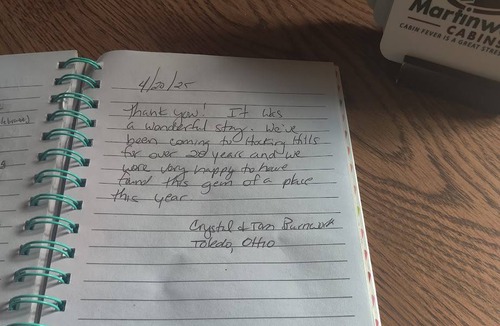 4/20/25
Thank you! It was
a wonderful stay. We've
been coming to Hocking Hills
for over 20 years and we
were very happy to have
found this gem of a place
this year
Crystal & Tom
Toledo, Ohio
CABINS
CABIN FEVER IS A GREAT